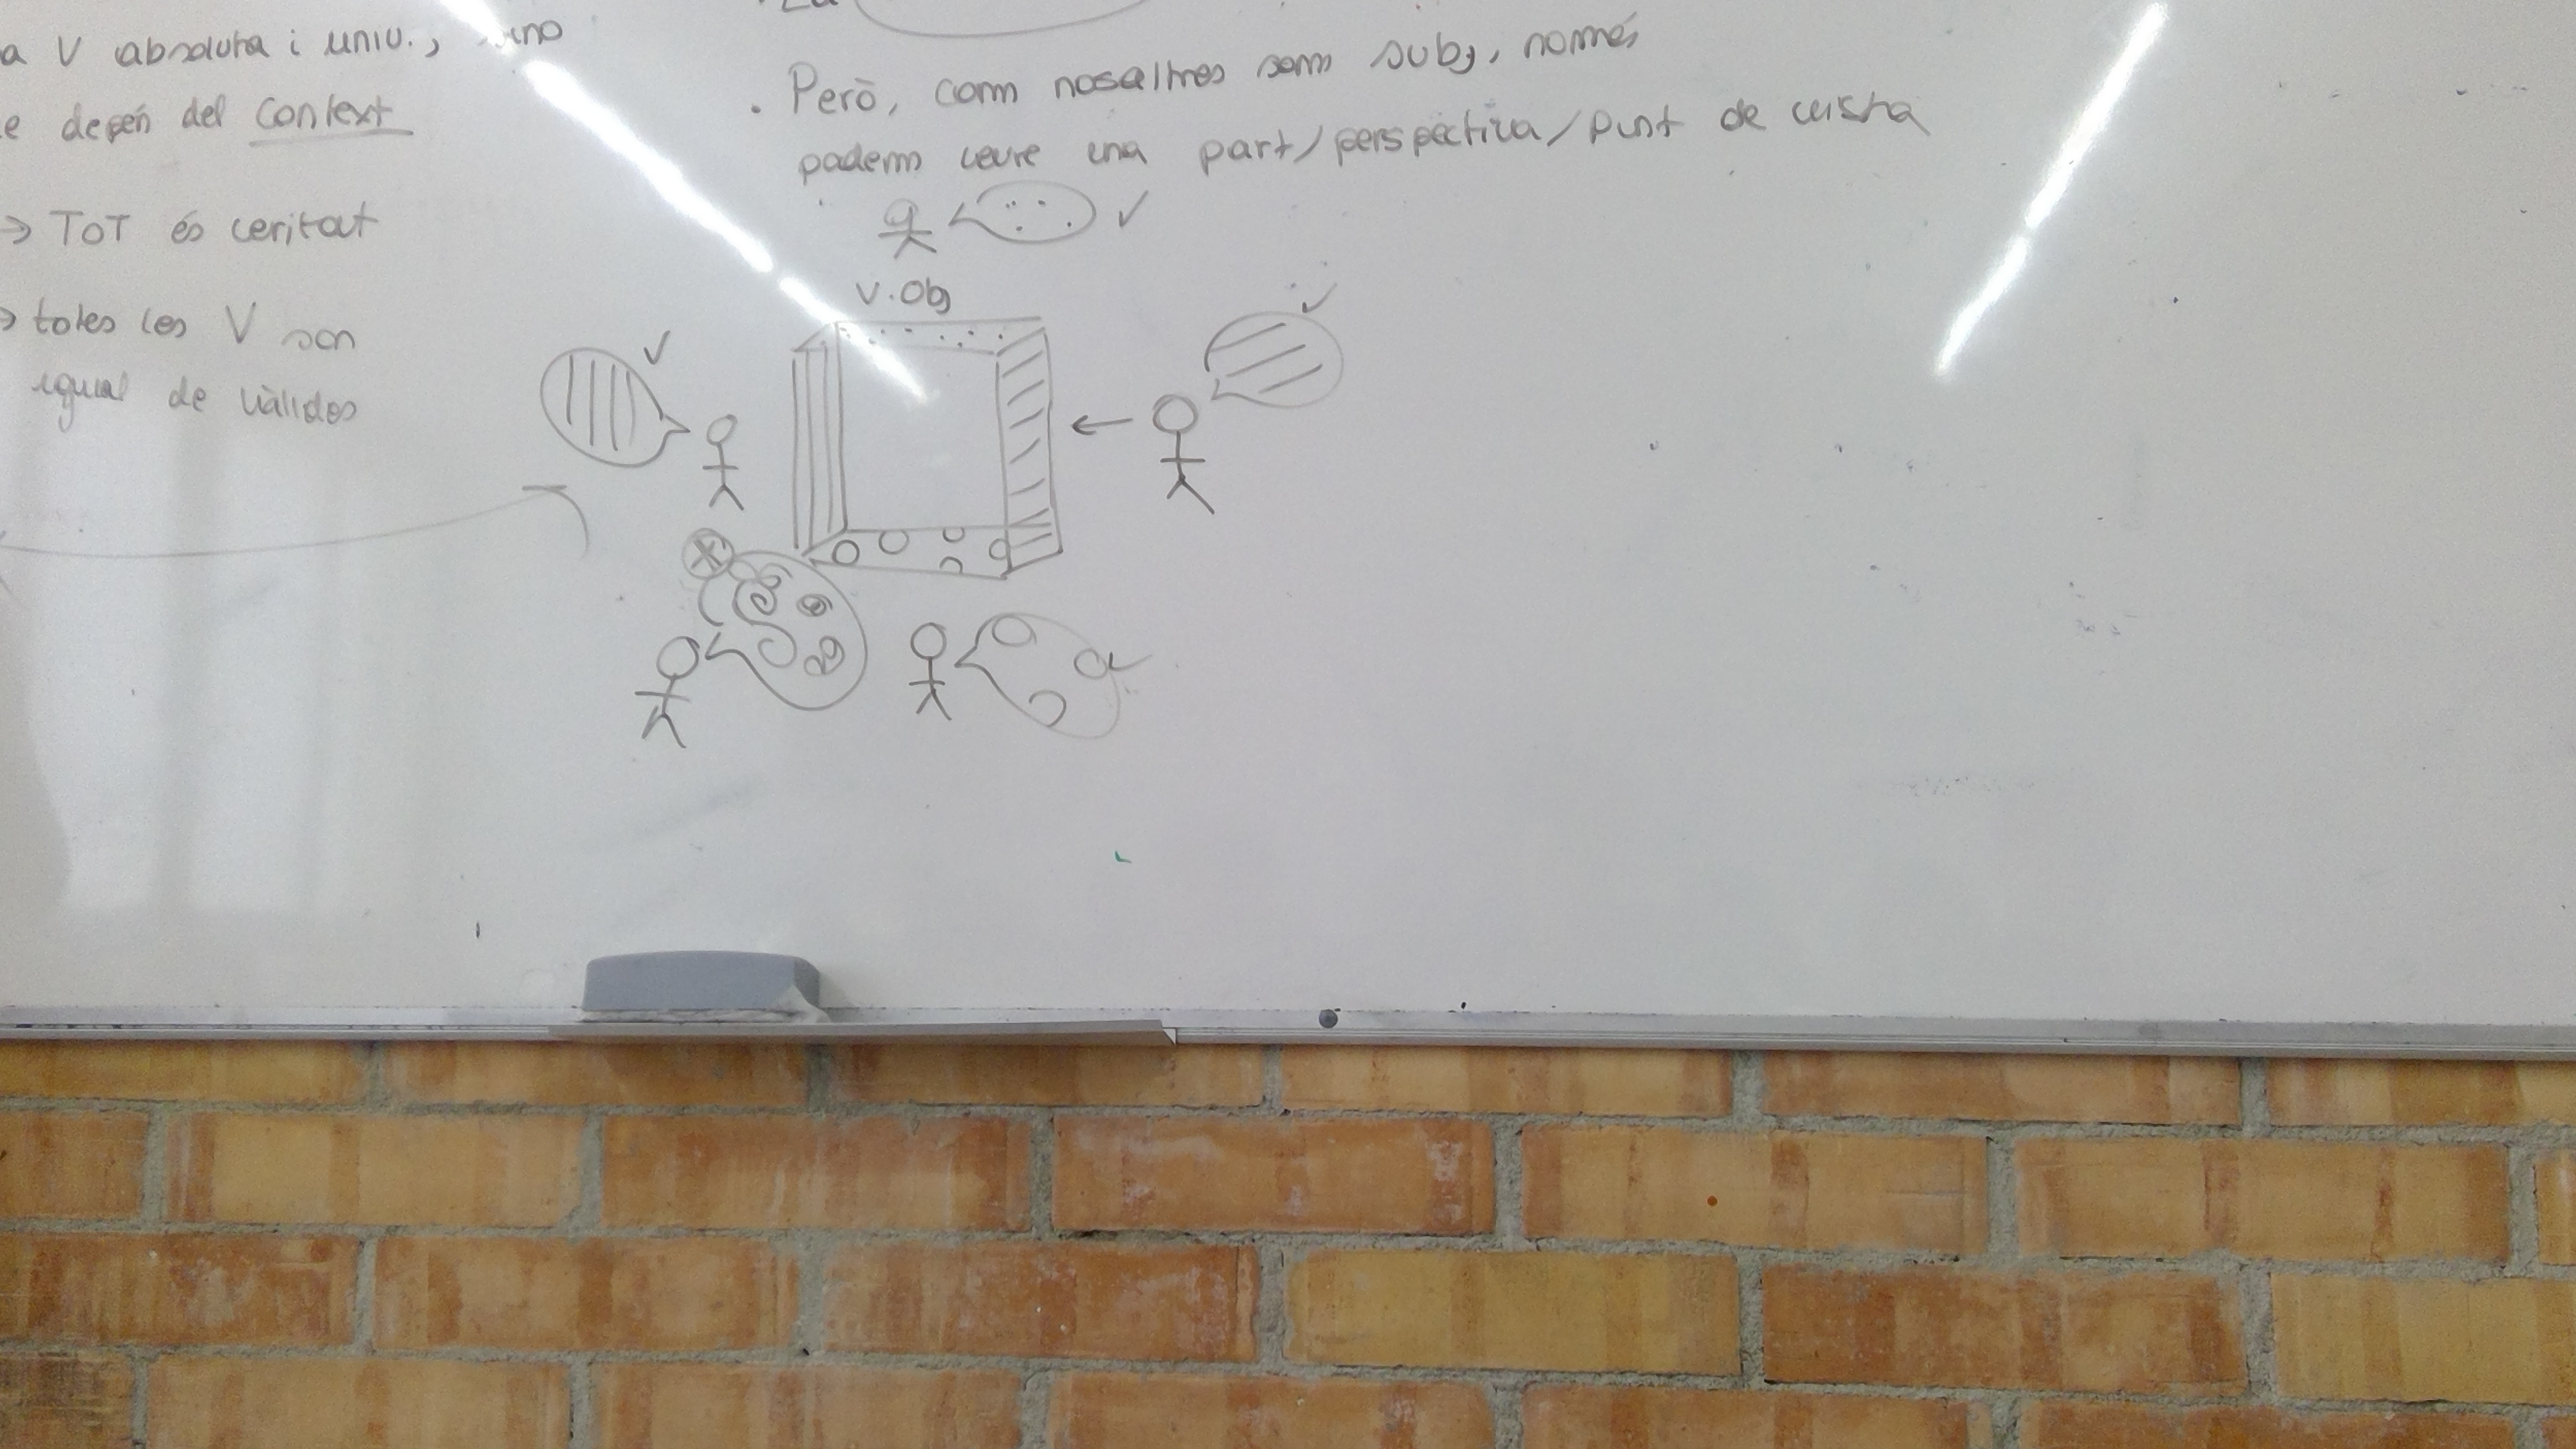 a V absoluta i univ., sino
e depén del context
→ TOT és veritat
→ totes les V son
igual de vàlides
La
. Però, com nosaltres som subj, només
podem veure una part/perspectiva/punt de vista
V.Obj